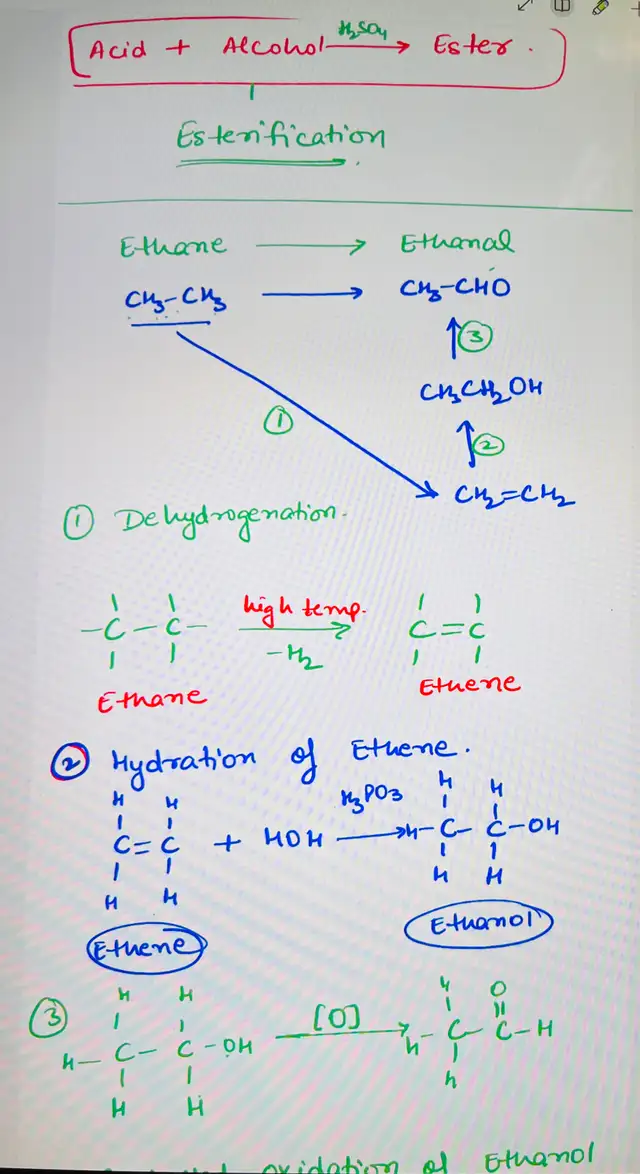 Acid + Alcohol H₂SO₄ → Ester.
Esterification
Ethane → Ethanal
CH₃-CH₃ → CH₃-CHO
③
CH₃CH₂OH
① ②
CH₂=CH₂
① Dehydrogenation.
-C-C- high temp. → C=C
-H₂
Ethane Ethene
② Hydration of Ethene.
H H H₃PO3 H H
C=C + HOH → H-C-C-OH
H H H H
Ethene Ethanol
③ H H H O
H-C-C-OH [O] → H-C-C-H
H H H
oxidation of Ethanol